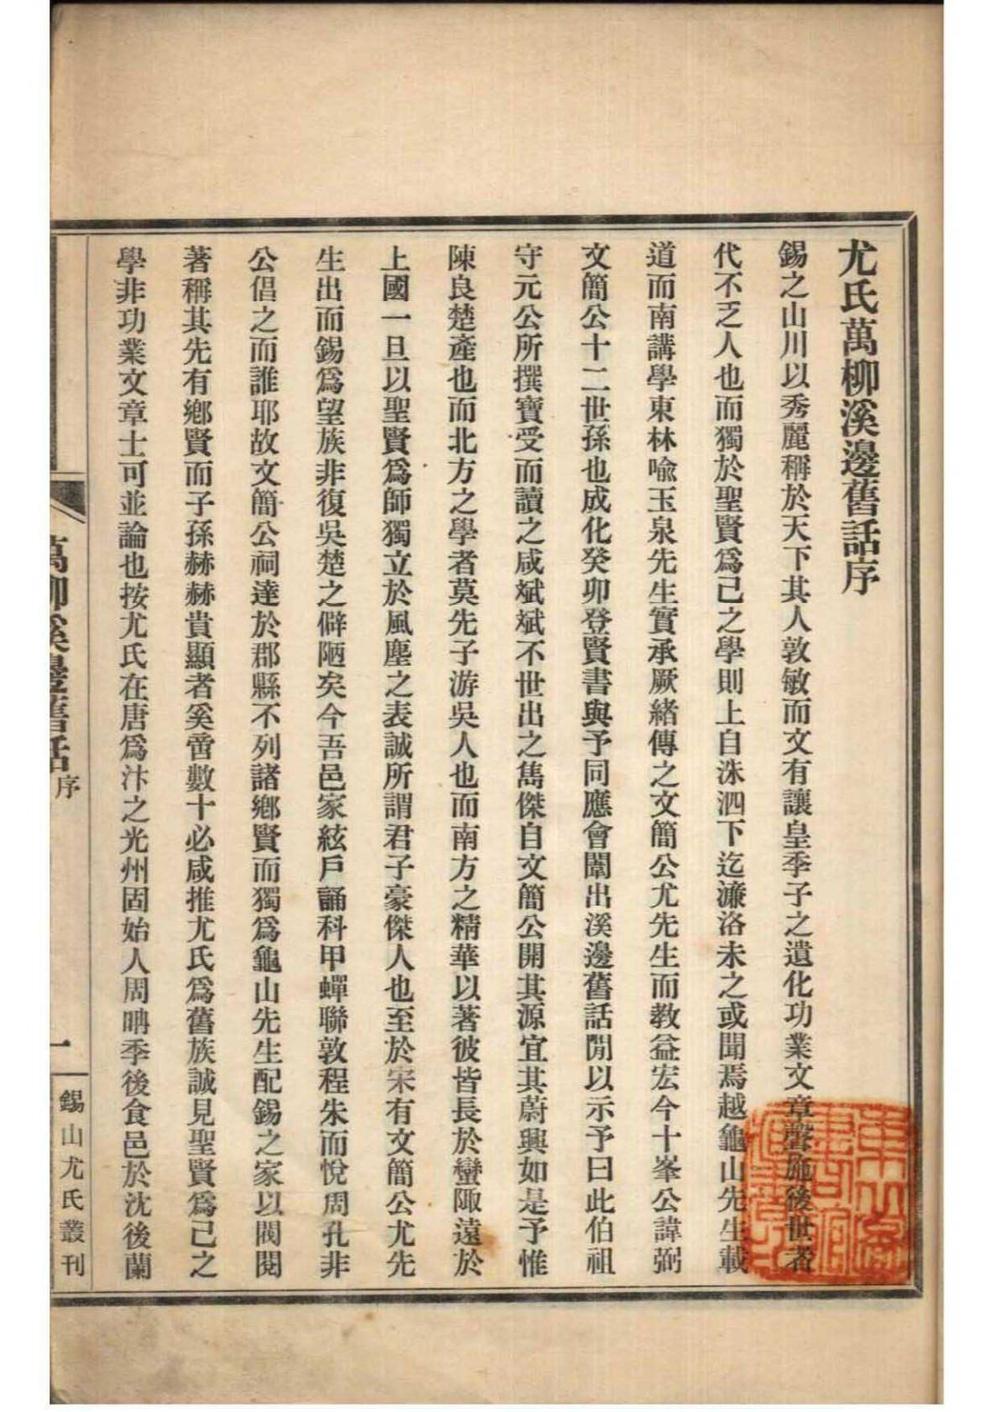 尤氏萬柳溪邊舊話序
錫之山川以秀麗稱於天下其人敦敏而文有讓皇季子之遺化功業文章聲施後世者
代不乏人也而獨於聖賢爲己之學則上自洙泗下迄濂洛未之或聞焉越龜山先生載
道而南講學東林喩玉泉先生實承厥緒傳之文簡公尤先生而教益宏今十峯公諱弼
文簡公十二世孫也成化癸卯登賢書與予同應會闈出溪邊舊話閒以示予曰此伯祖
守元公所撰寶受而讀之咸斌斌不世出之雋傑自文簡公開其源宜其蔚興如是予惟
陳良楚產也而北方之學者莫先子游吳人也而南方之精華以著彼皆長於蠻陬遠於
上國一旦以聖賢爲師獨立於風塵之表誠所謂君子豪傑人也至於宋有文簡公尤先
生出而錫爲望族非復吳楚之僻陋矣今吾邑家絃戶誦科甲蟬聯敦程朱而悅周孔非
公倡之而誰耶故文簡公祠達於郡縣不列諸鄉賢而獨爲龜山先生配錫之家以閥閱
著稱其先有鄉賢而子孫赫赫貴顯者奚啻數十必咸推尤氏爲舊族誠見聖賢爲己之
學非功業文章士可並論也按尤氏在唐爲汴之光州固始人周聃季後食邑於沈後蘭
萬柳溪邊舊話 序
一
錫山尤氏叢刊